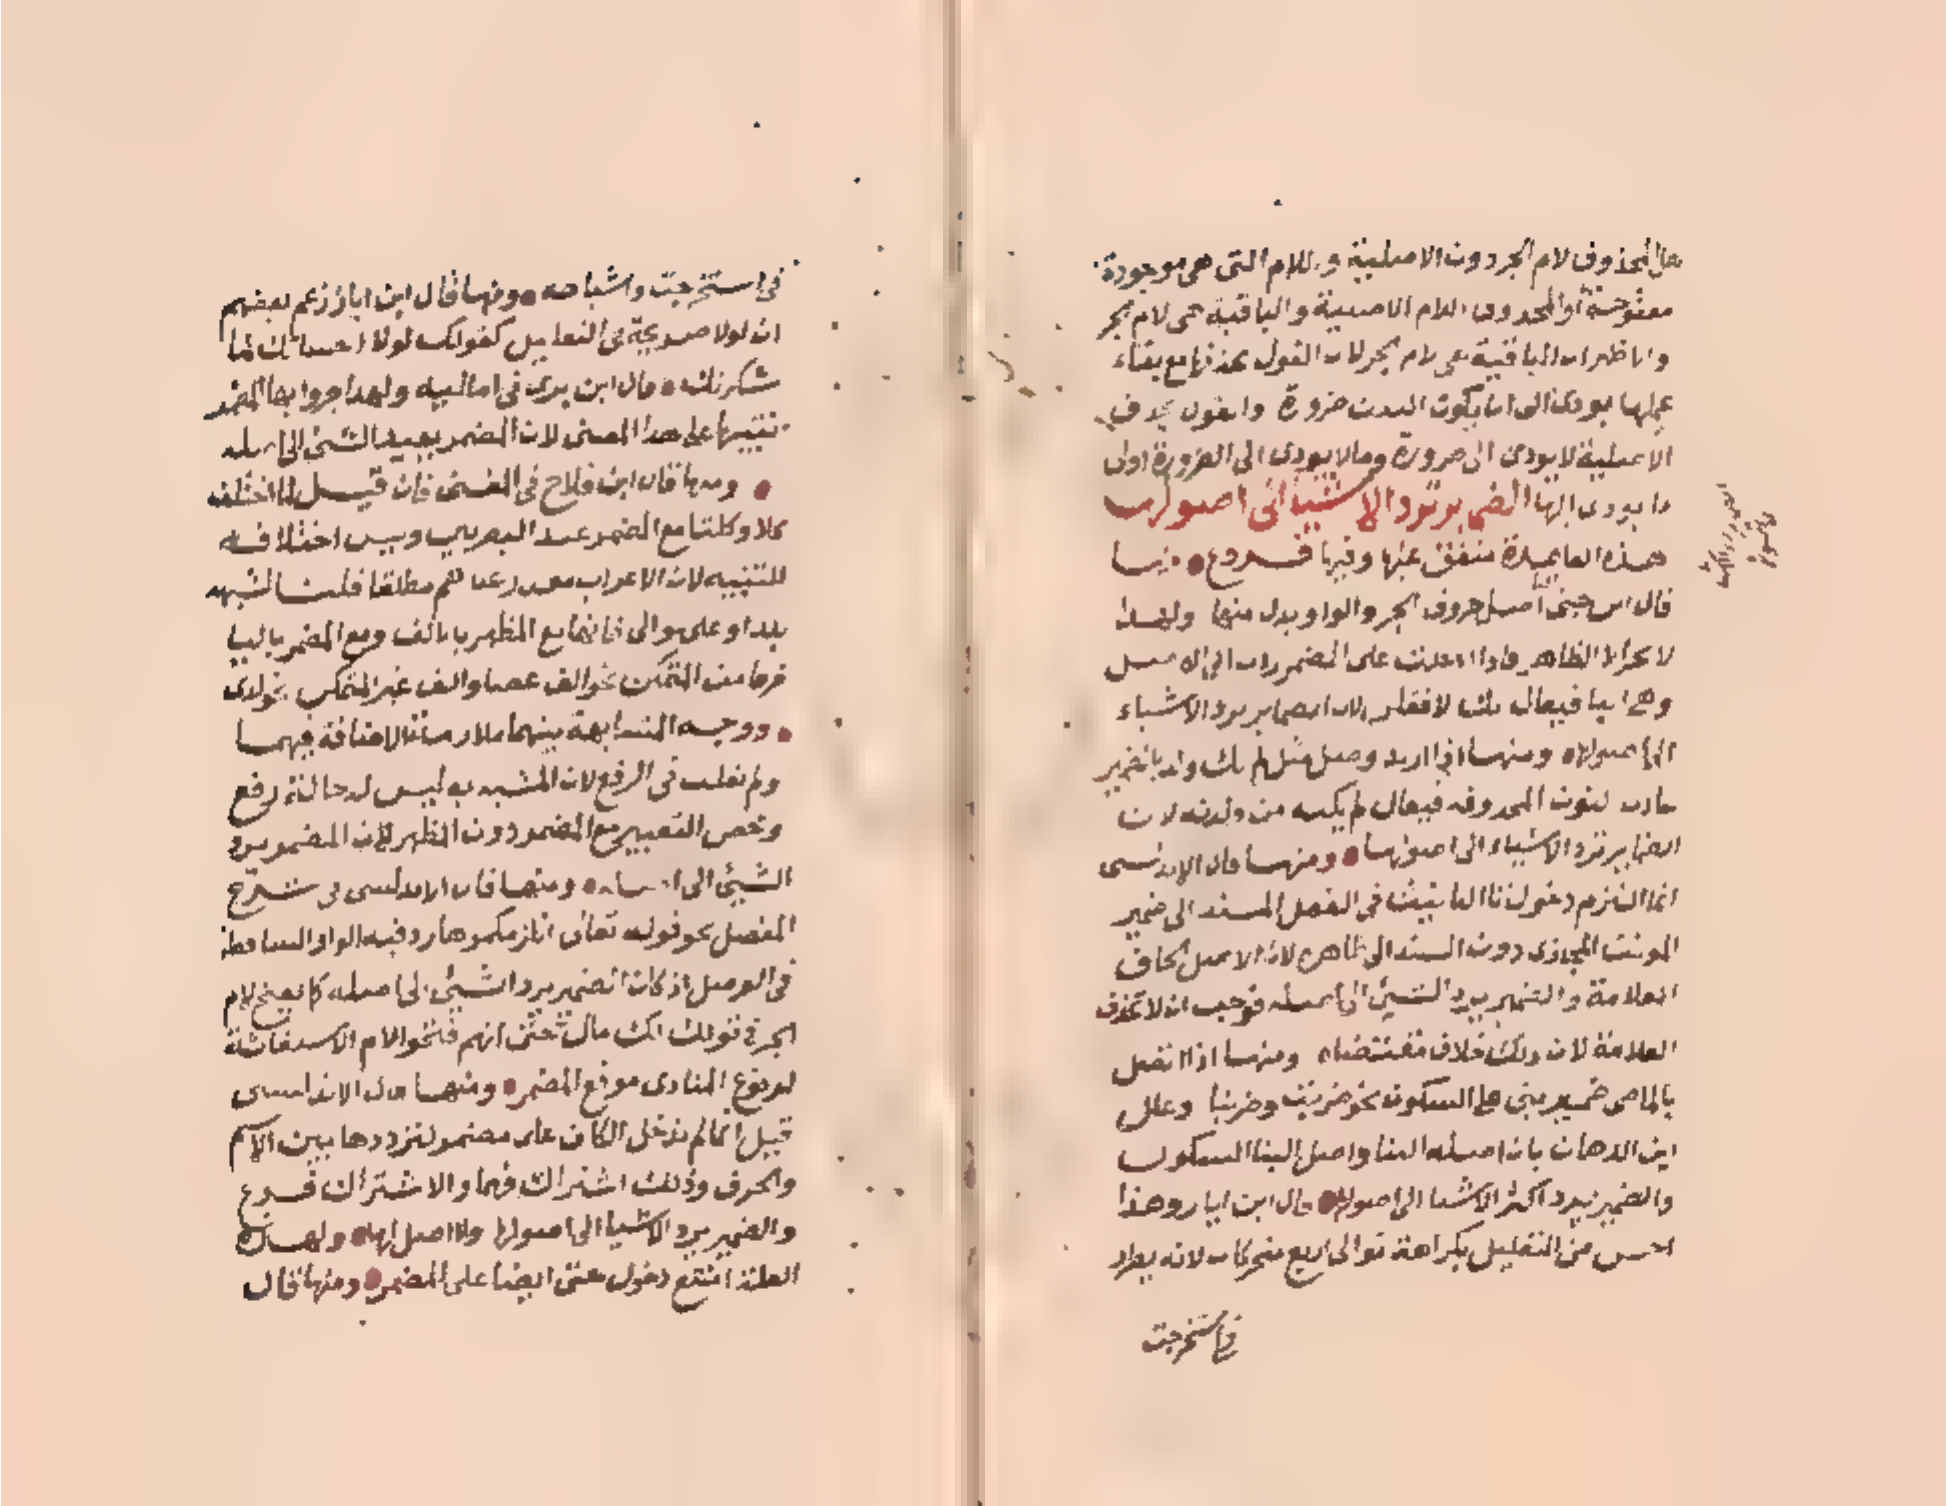 هل المحذوف لام الجر دون الاصلية واللام التى هى موجودة
مفتوحة أو المحذوف اللام الاصلية والباقية هى لام الجر
والاظهر ان الباقية هى لام الجر لان القول بحذفها مع بقاء
عملها يودى الى ان يكون البدن ضرورة والقول بحذف
الاصلية لا يودى الى ضرورة وما لا يودى الى الضرورة اولى
ما يودى اليها الضماير ترد الاشيا الى اصولها
هذه القاعدة متفق عليها وفيها فروع منها
قال ابن جنى اصل حروف الجر والواو بدل منها ولهذا
لا تجر الا الظاهر فاذا دخلت على المضمر ردت الى الاصل
وهى البا فيقال بك لافعلن لان الضماير ترد الاشياء
الى اصولها ومنها اذا اريد وصل مثل لم يك ولد بالضمير
عادت النون المحذوفة فيقال لم يكنه من ولدته لان
الضماير ترد الاشياء الى اصولها ومنها قال الاندلسى
انما التزم دخول تا التانيث فى الفعل المسند الى ضمير
المونث المجازى دون المسند الى ظاهره لان الاصل الحاق
العلامة والضمير يرد الشيئ الى اصله فوجب ان لا تحذف
العلامة لان ذلك خلاف مقتضاه ومنها اذا اتصل
بالماضى ضمير بنى على السكون نحو ضربت وضربنا وعلل
ابن الدهان بان اصله البنا واصل البنا السكون
والضمير يرد اكثر الاشيا الى اصولها قال ابن اياز وهذا
احسن من التعليل بكراهة توالى اربع متحركات لانه يطرد
فى استخرجت
فى استخرجت واشباهه ومنها قال ابن اياز زعم بعضهم
ان لولا صريحة فى التعليل كقولك لولا احسانك لما
شكرتك قال ابن برى فى اماليه ولهذا جروا بها المضمر
تنبيها على هذا المعنى لان المضمر يعيد الشيئ الى اصله
ومنها قال ابن فلاح فى المغنى فان قيل لما اختلف
كلا وكلتا مع الضمير عند البصريين وليس اختلافه
للتثنية لان الاعراب مقدر عندهم مطلقا قلنا لشبهه
بلدا وعلى والى فانها مع المظهر بالالف ومع المضمر باليا
فرقا بين المتمكن نحو الف عصا والف غير المتمكن نحو لدى
ووجه المشابهة بينهما ملازمة الاضافة فيهما
ولم تقلب فى الرفع لان المشبه به ليس له حالة رفع
وخص التغيير مع المضمر دون المظهر لان المضمر يرد
الشيئ الى اصله ومنها قال الاندلسى فى شرح
المفصل نحو قوله تعالى انلزمكموها رد فيه الواو الساقطة
فى الوصل اذ كان الضمير يرد الشيئ الى اصله كما تفتح لام
الجر فى قولك لك مال حتى انهم فتحوا لام الاستغاثة
لوقوع المنادى موقع المضمر ومنها قال الاندلسى
قيل انما لم تدخل الكاف على مضمر لترددها بين الاسم
والحرف وذلك اشتراك فيها والاشتراك فرع
والضمير يرد الاشيا الى اصولها ولا اصل لها ولهذه
العلة امتنع دخول حتى ايضا على المضمر ومنها قال